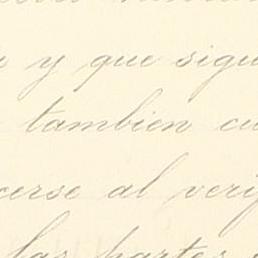 y que sigu
tambien cu
cerse al veri
las partes